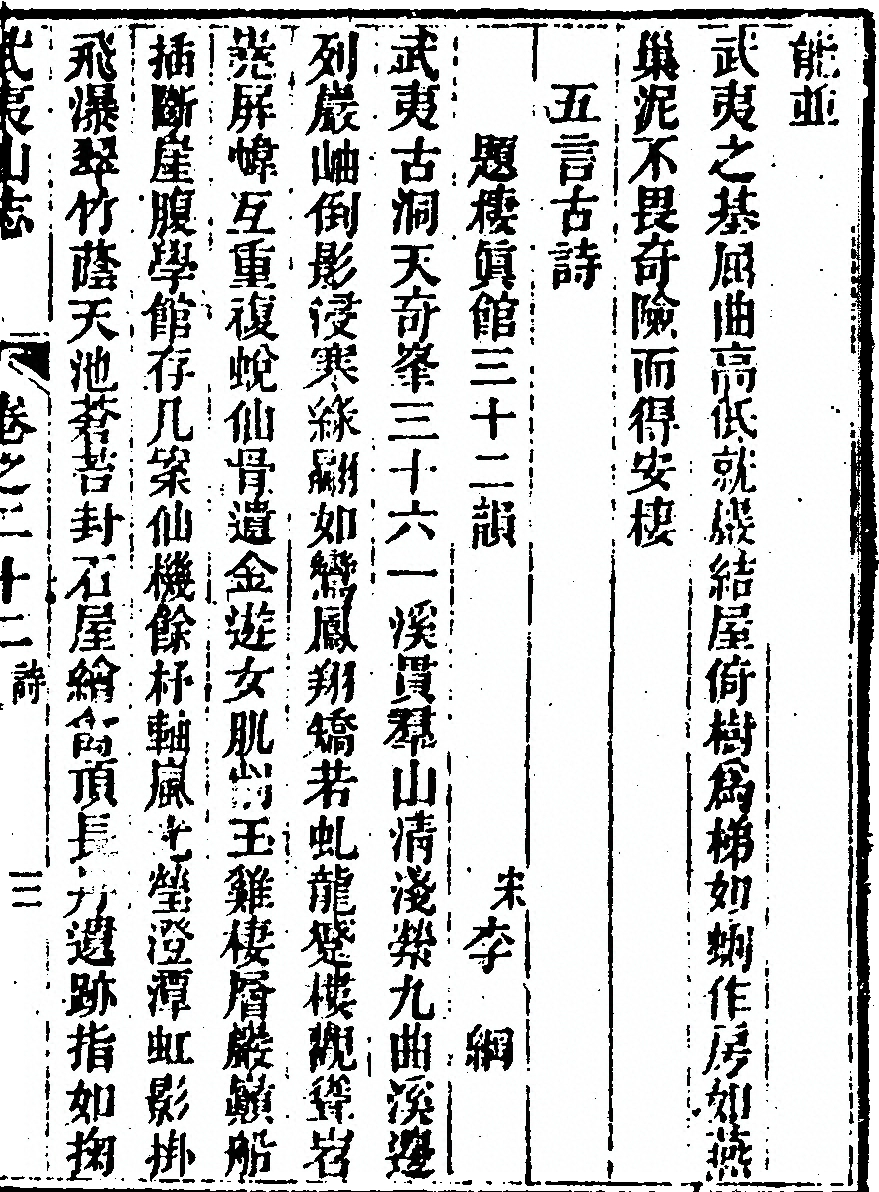 能並
武夷之基屈曲高低就巖結屋倚樹為梯如蜩作房如燕
巢泥不畏奇險而得安棲
五言古詩
題棲真館三十二韻 宋李綱
武夷古洞天奇峯三十六一溪貫羣山清淺縈九曲溪邊
列巖岫倒影浸寒綠翩如鸞鳳翔矯若虬龍蹙樓觀聳岧
嶤屏幃互重複蛻仙骨遺金遊女肌削玉雞棲層巖巔船
插斷崖腹學館存几案仙機餘杼軸嵐光瑩澄潭虹影掛
飛瀑翠竹蔭天池蒼苔封石屋繪禽頂長丹遺跡指如掬
武夷山志 卷之二十二 詩 三